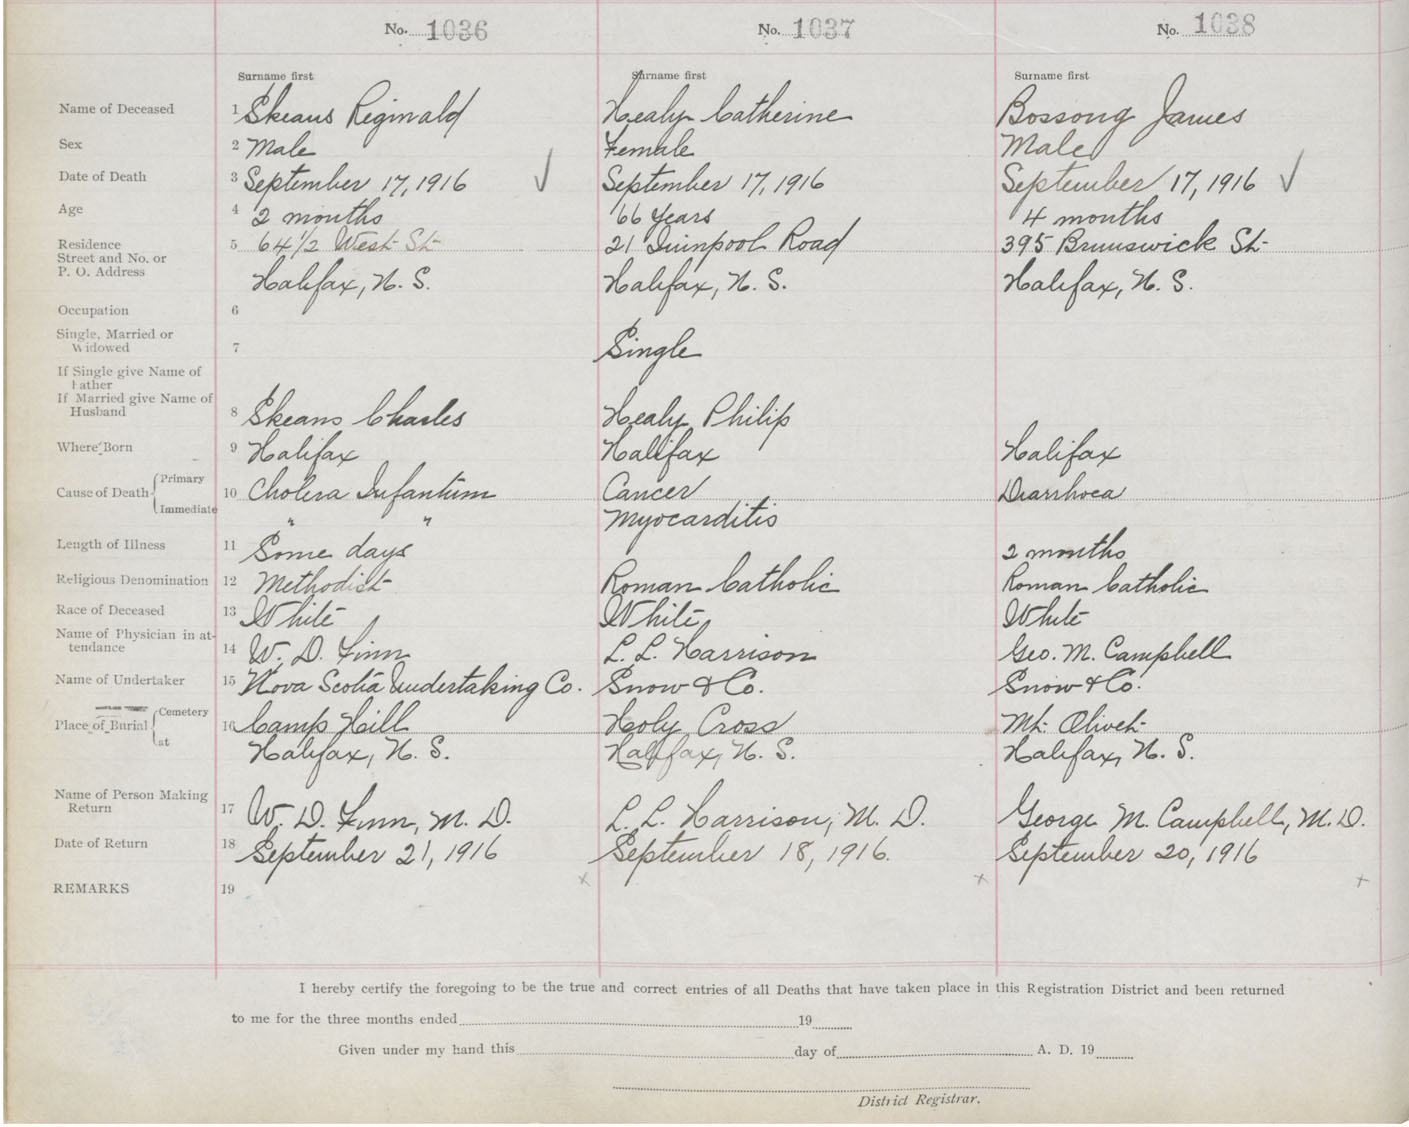 No. 1036 No. 1037 No. 1038
Surname first Surname first Surname first
Name of Deceased 1 Skeans Reginald Healy Catherine Bossong James
Sex 2 Male Female Male
Date of Death 3 September 17, 1916 ✓ September 17, 1916 September 17, 1916 ✓
Age 4 2 months 66 years 4 months
Residence 5 64 1/2 West St 21 Quinpool Road 395 Brunswick St
Street and No. or
P. O. Address Halifax, N. S. Halifax, N. S. Halifax, N. S.
Occupation 6
Single, Married or
Widowed 7 Single
If Single give Name of
Father
If Married give Name of
Husband 8 Skeans Charles Healy Philip
Where Born 9 Halifax Halifax Halifax
Primary
Cause of Death 10 Cholera Infantum Cancer Diarrhoea
Immediate " " Myocarditis
Length of Illness 11 Some days 2 months
Religious Denomination 12 Methodist Roman Catholic Roman Catholic
Race of Deceased 13 White White White
Name of Physician in at-
tendance 14 W. D. Finn L. L. Harrison Geo. M. Campbell
Name of Undertaker 15 Nova Scotia Undertaking Co. Snow & Co. Snow & Co.
Cemetery
Place of Burial 16 Camp Hill Holy Cross Mt. Olivet
at Halifax, N. S. Halifax, N. S. Halifax, N. S.
Name of Person Making
Return 17 W. D. Finn, M. D. L. L. Harrison, M. D. George M. Campbell, M. D.
Date of Return 18 September 21, 1916 September 18, 1916. September 20, 1916
REMARKS 19 x x x
I hereby certify the foregoing to be the true and correct entries of all Deaths that have taken place in this Registration District and been returned
to me for the three months ended 19
Given under my hand this day of A. D. 19
District Registrar.